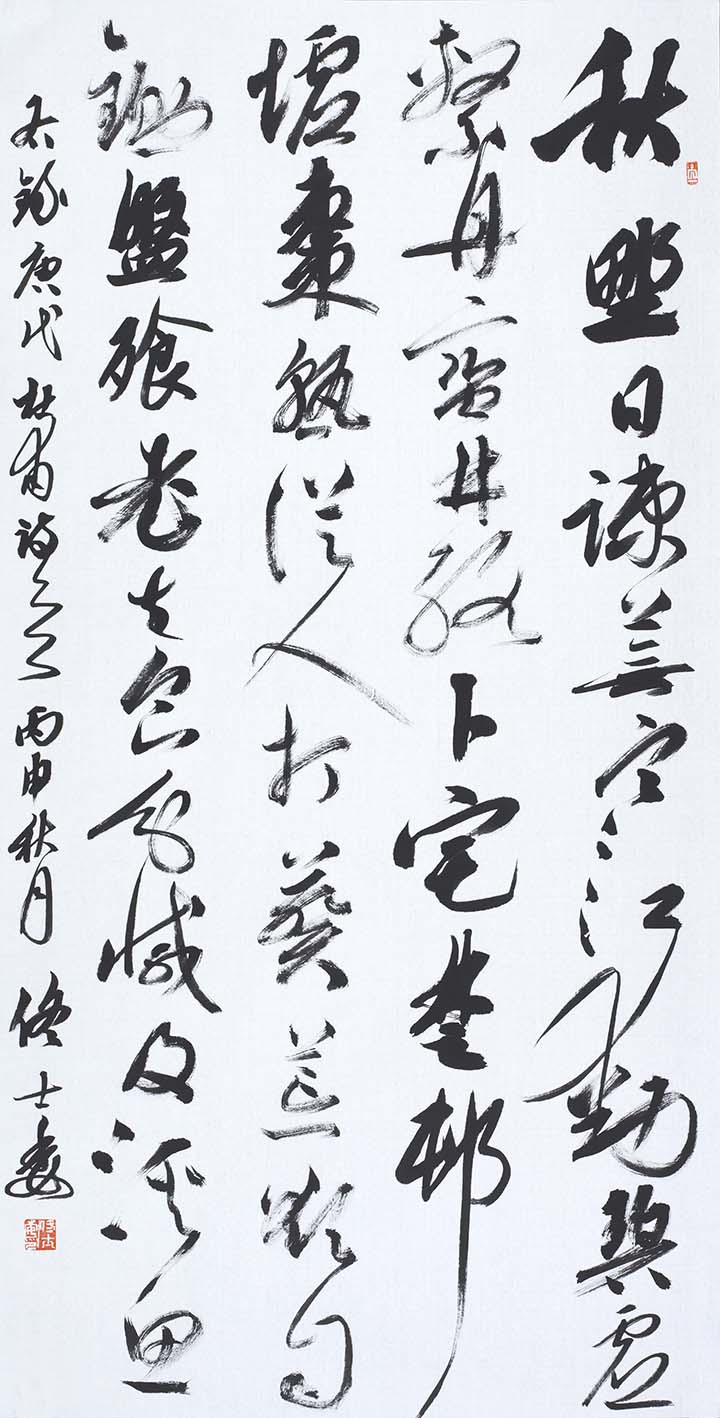 秋野日疎蕪寒江動碧虛
繫舟蠻井絡卜宅楚邨
墟棗熟從人打葵荒欲自
鋤盤飱老夫食分減及溪魚
右錄唐代杜甫詩 丙申秋月 士